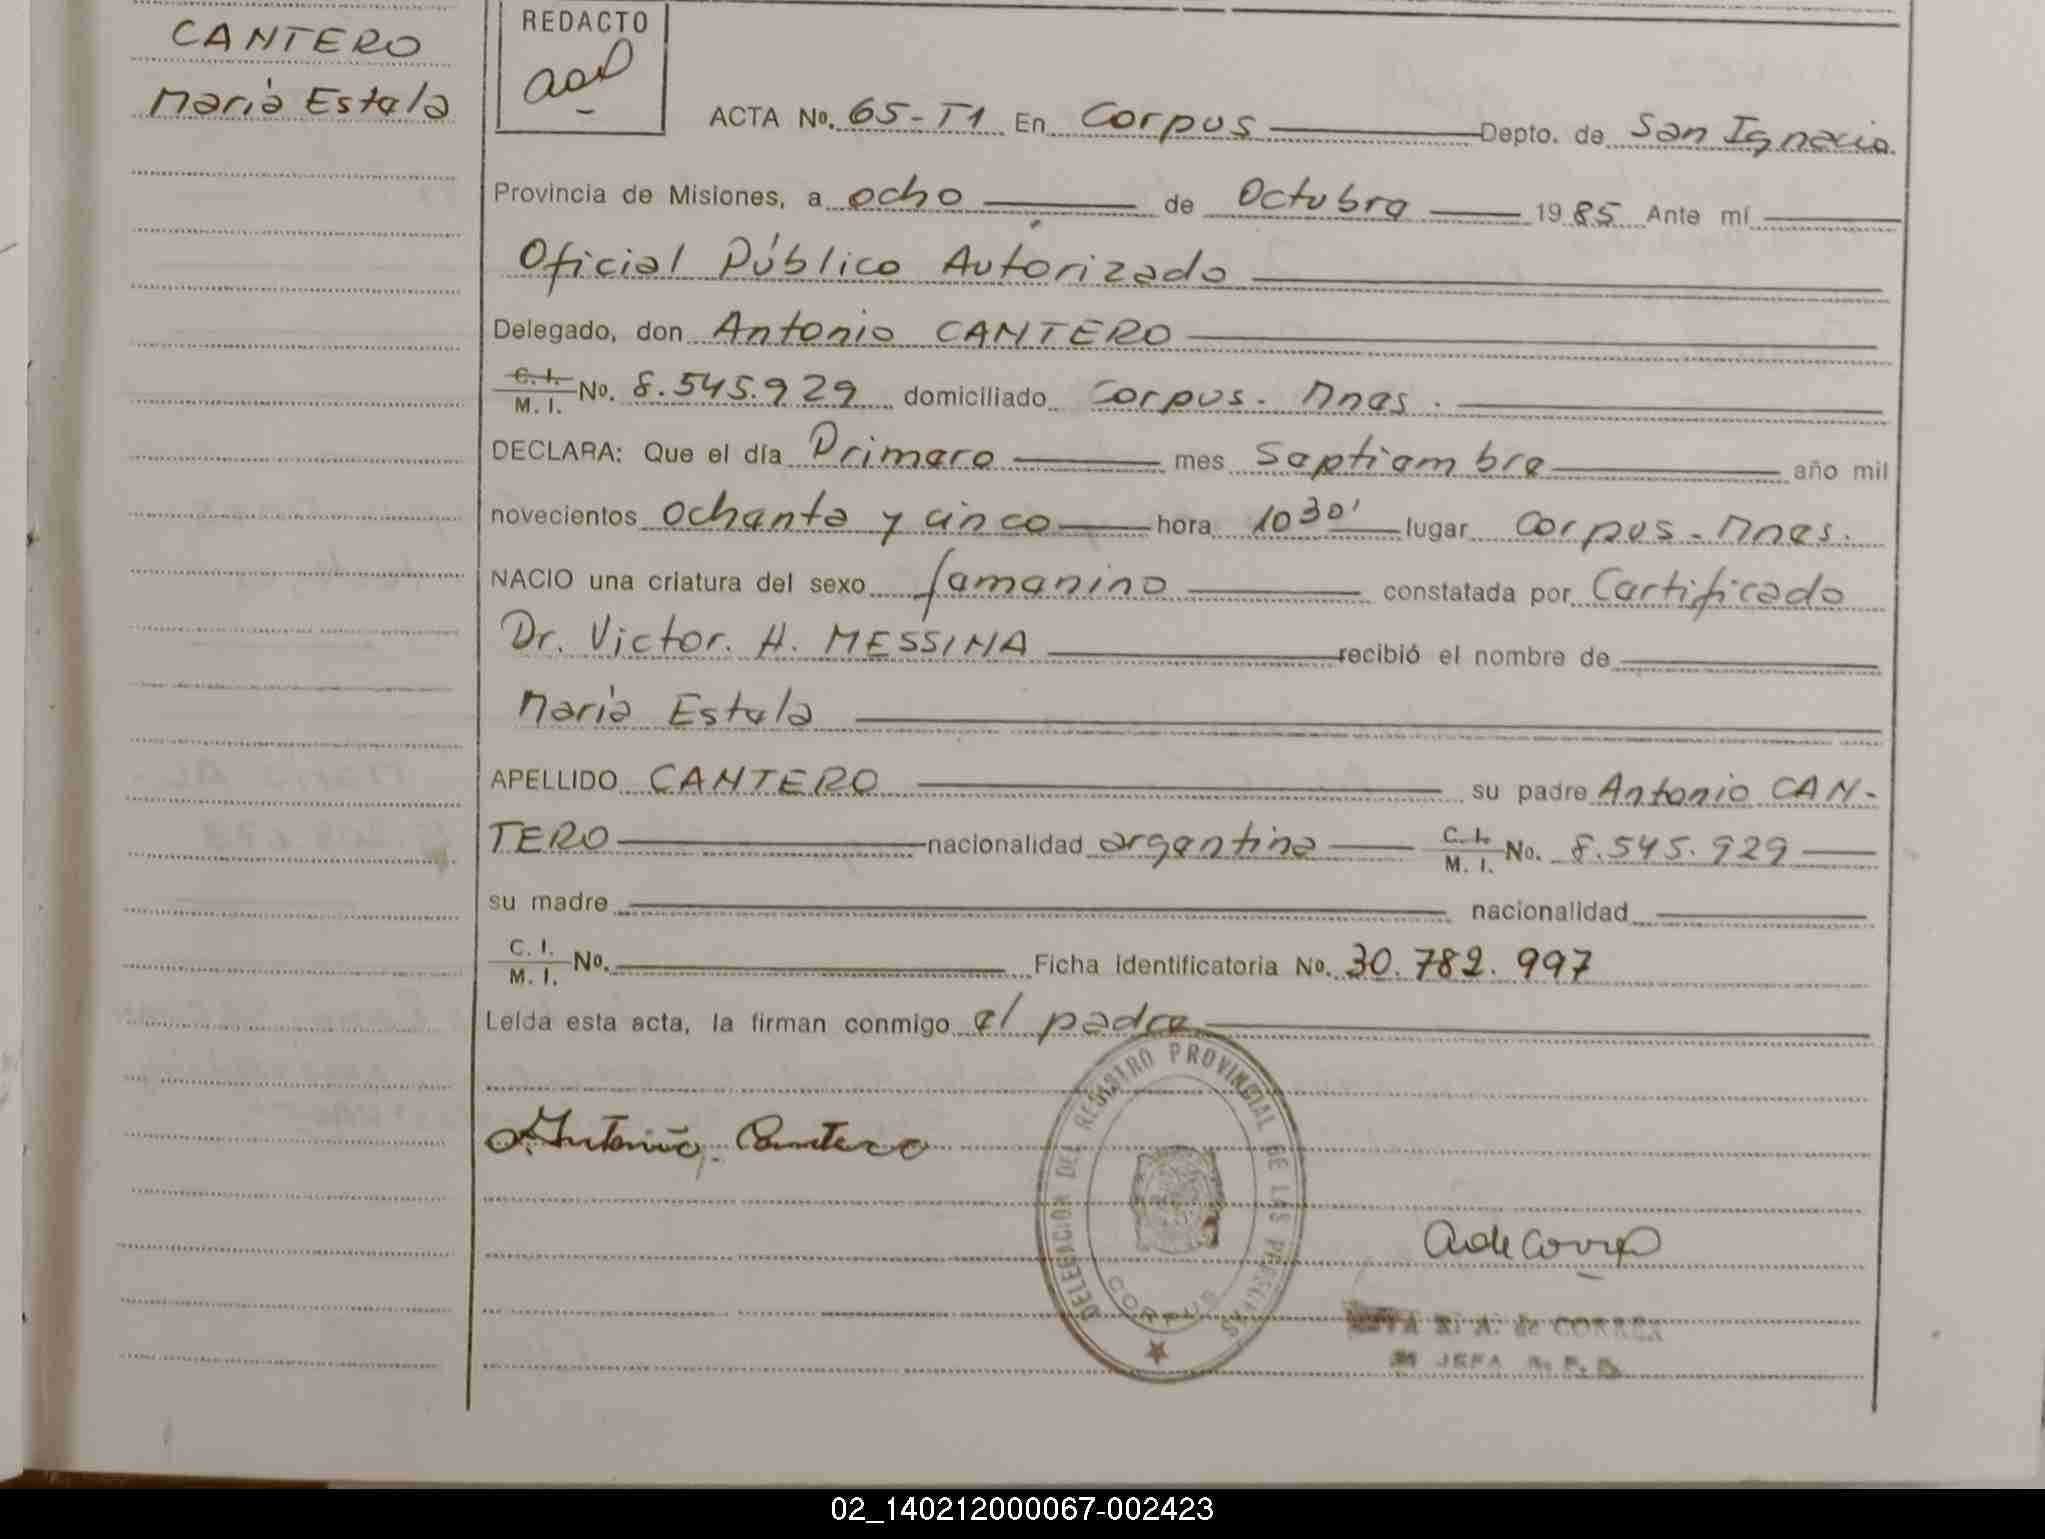 CANTERO
María Estela
REDACTO
ACTA No. 65-T1 En Corpus Depto. de San Ignacio
Provincia de Misiones, a ocho de Octubre 1985 Ante mí
Oficial Público Autorizado
Delegado, don Antonio CANTERO
C. I. M. I. No. 8.545.929 domiciliado Corpus. Mnes.
DECLARA: Que el día Primero mes Septiembre año mil
novecientos ochenta y cinco hora 10 30' lugar Corpus - Mnes.
NACIO una criatura del sexo femenino constatada por Certificado
Dr. Victor. H. MESSINA recibió el nombre de
María Estela
APELLIDO CANTERO su padre Antonio CAN-
TERO nacionalidad argentina C. I. M. I. No. 8.545.929
su madre nacionalidad
C. I. M. I. No. Ficha identificatoria No. 30.782.997
Leída esta acta, la firman conmigo el padre
Antonio Cantero
DELEGACION DEL REGISTRO PROVINCIAL DE LAS PERSONAS
CORPUS
A. de CORREA
JEFA
02_140212000067-002423